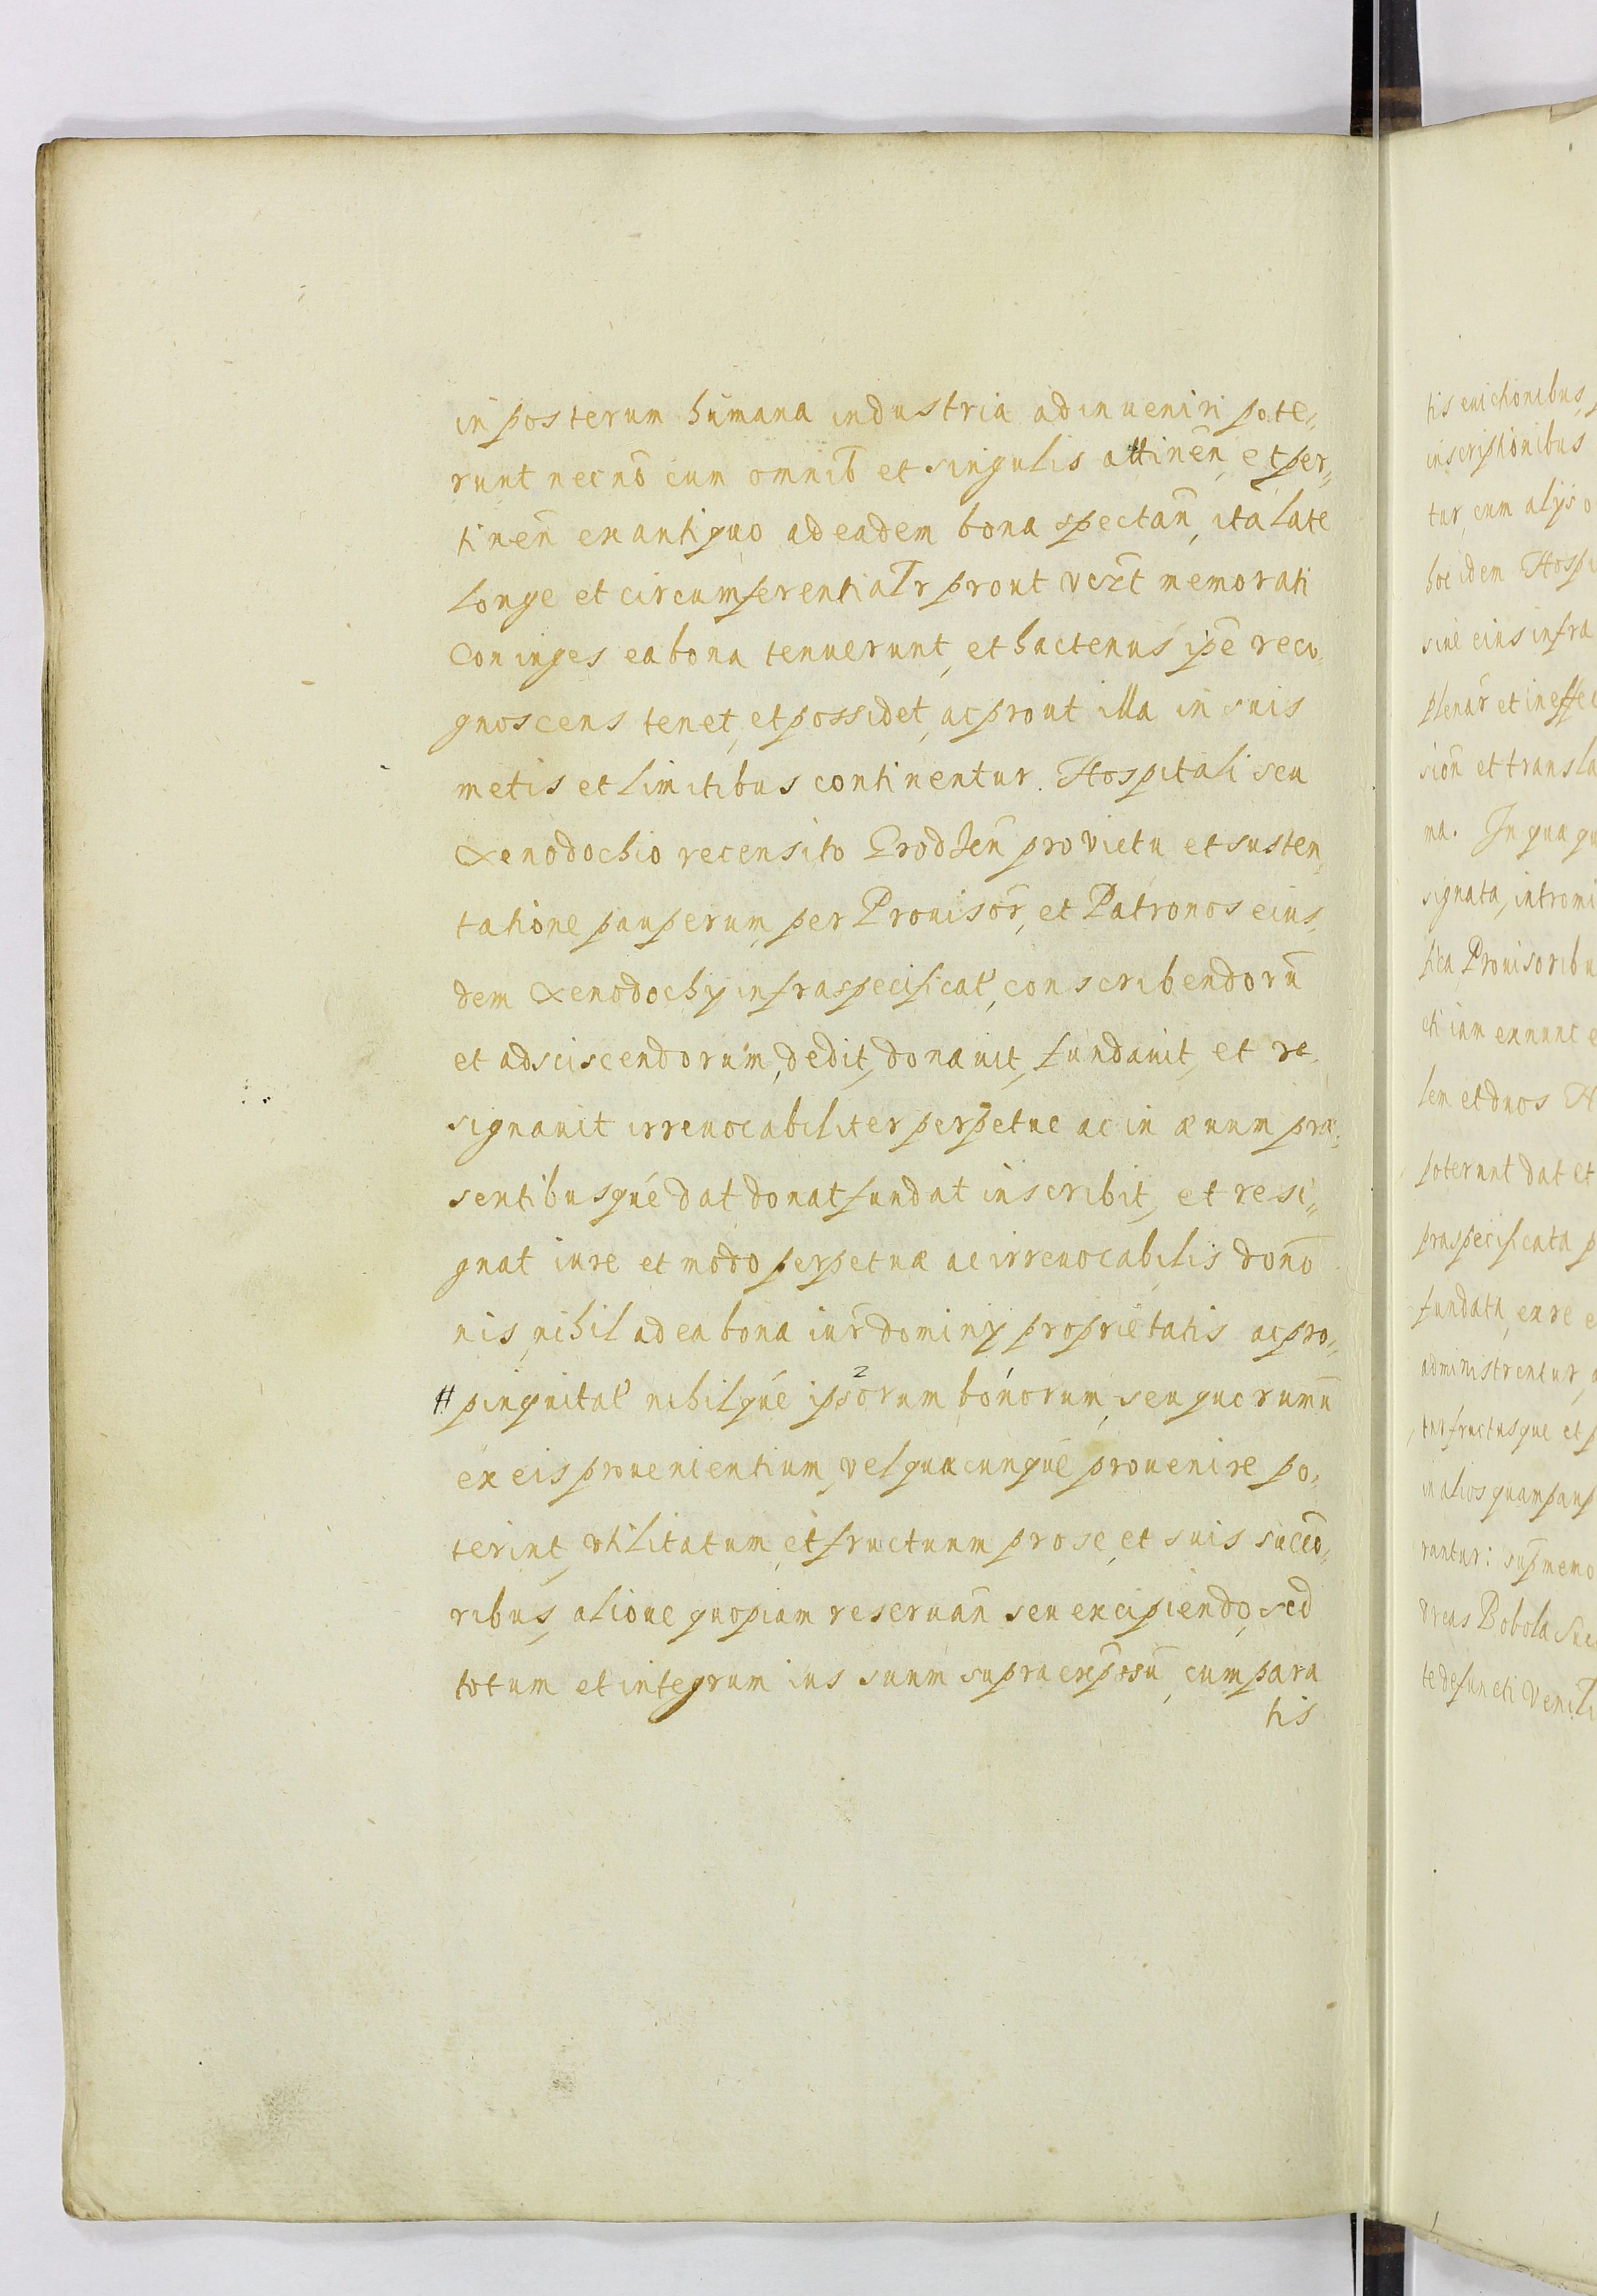 in posterum humana industria adinueniri pote,
runt necnō cum omnib̄ et singulis attineñ, et per,,
tineñ ex antiquo ad eadem bona spectañ, ita late
longe et circumferential̄r prout vezt memorati
Coniuges ea bona tenuerunt, et hactenus ip̄e reco,
gnoscens tenet, et possidet, ac prout illa in suis
metis et limitibus continentur. Hospitali seu
Xenodochio recensito Brodzeñ pro victu et susten,
tatione pauperum, per Prouisor̄, et Patronos eius,
dem Xenodochÿ infraspecificat', conscribendorū
et adsciscendorum, dedit, donauit, fundauit, et re,
signauit irreuocabiliter perpetue ac in æuum præ,
sentibusqué dat donat fundat inscribit, et resi,,
gnat iure et modo perpetuæ ac irreuocabilis donō
nis, nihil ad ea bona iur̄ dominÿ proprietatis ac pro,,
# pinquitat' nihilqué ipsorum bonorum, seu quorumū
ex eis prouenientium, vel quæcunqué prouenire po,
terint, vtilitatum, et fructuum pro se, et suis succō,
ribus, alioue quopiam reseruañ seu excipiendo, sed
totum et integrum ius suum supra exposū, cum para
tis
tis euictionibus,
inscriptionibus
tur, cum alÿs o
hoc idem Hospi
siue eius infra
plenar̄ et in effec
sioñ et transla
ma. In qua qu
signata, intromi
tica Prouisoribu
eti iam exnunc e
lem et duos N
poterunt dat et
præspecificata p
fundata, ex re e
administrentur, a
tur fructusque et p
in alios quam paup
rantur: sup̄memo
dreas Bobola Suc
te defuncti Vene